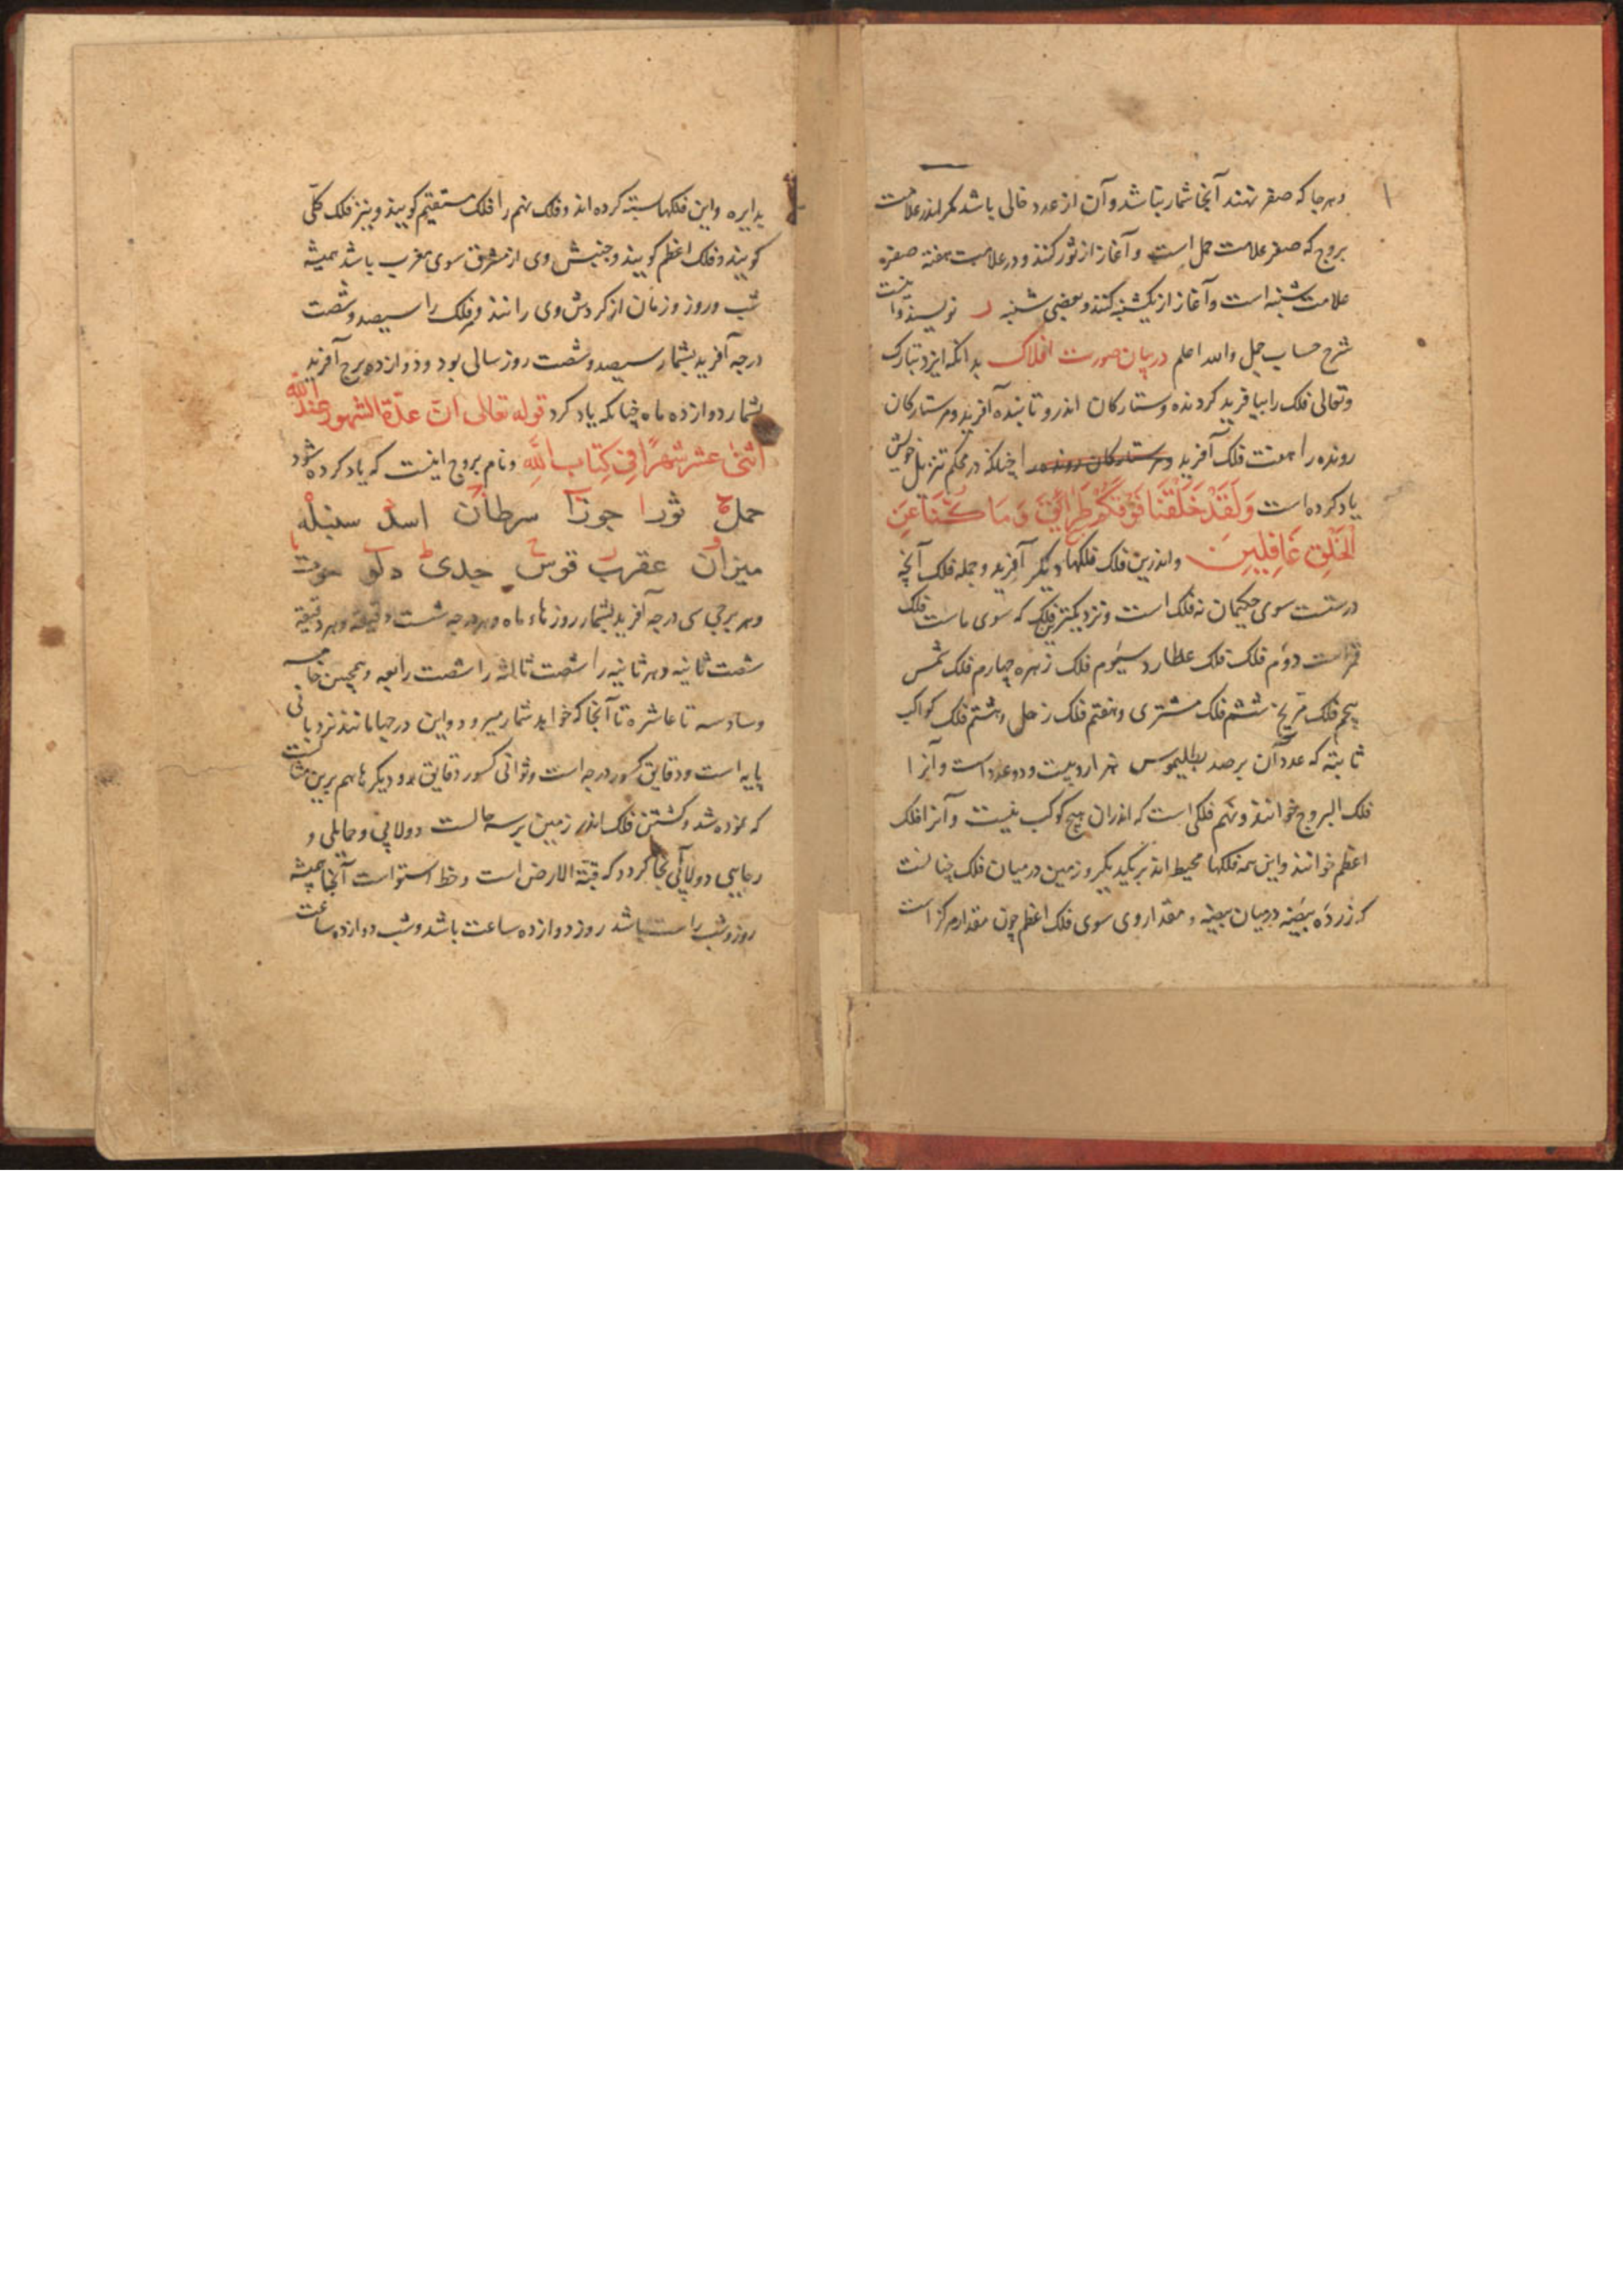 وهرجا که صفر نهند آنجا شمار نباشد و آن از عدد خالی باشد مگر اندر علامت
بروج که صفر علامت حمل است و آغاز از ثور کنند و در علامت هفته صفره
علامت شنبه است و آغاز از یکشنبه کنند و بعضی شنبه ر نویسند و اینست
شرح حساب جمل والله اعلم در بیان صورت افلاک بدانکه ایزد تبارک
وتعالی فلک را بیافرید کردنده و ستارکان اندرو تابنده آفرید و مر ستارکان
رونده را هفت فلک آفرید و مر ستارکان رونده را چنانکه در محکم تنزیل خویش
یاد کرده است وَلَقَدْ خَلَقْنَا فَوْقَكُمْ سَبْعَ طَرَائِقَ وَمَا كُنَّا عَنِ
الْخَلْقِ غَافِلِينَ واندرین فلک فلکها دیکر آفرید و جمله فلک آنچه
درستست سوی حکیمان نه فلک است و نزدیکترین فلک که سوی ماست فلک
قمر است دوم فلک فلک عطارد سیوم فلک زهره چهارم فلک شمس
پنجم فلک مریخ ششم فلک مشتری و هفتم فلک زحل و هشتم فلک کواکب
ثابته که عدد آن برصد بطلیموس هزار و بیست و دو عدد است و آنرا
فلک البروج خوانند و نهم فلکی است که اندران هیچ کوکب نیست و آنرا فلک
اعظم خوانند و این همه فلکها محیط اند بر یکدیکر و زمین در میان فلک چنانست
که زرده بیضه در میان بیضه و مقدار وی سوی فلک اعظم چون مقدار مرکز است
بدایره واین فلکها بسته کرده اند و فلک نهم را فلک مستقیم کویند و نیز فلک کلّی
کویند و فلک اعظم کویند و جنبش وی از مشرق سوی مغرب باشد همیشه
شب و روز و زمان از کردش وی رانند و مر فلک را سیصد و شصت
درجه آفرید بشمار سیصد و شصت روز سالی بود و دوازده برج آفرید
بشمار دوازده ماه چنانکه یاد کرد قوله تعالی انّ عدّة الشهور عند الله
اثنی عشر شهرًا فِی کِتاب اللهِ ونام بروج اینست که یاد کرده شود
حمل ثور جوزا سرطان اسد سنبله
میزان عقرب قوس جدی دلو حوت
وهر برجی سی درجه آفرید بشمار روزهاء ماه و هر درجه شست دقیقه و هر دقیقه
شصت ثانیه و هر ثانیه را شصت ثالثه را شصت رابعه و همچنین خامسه
وسادسه تا عاشره تا آنجا که خواهد شمار میرود و این درجها مانند نردبانی
پایه است و دقایق کسور درجه است و ثوانی کسور دقایق بود و دیکرها هم برین مثالست
که نموده شد و کشتن فلک اندر زمین بر سه حالست دولابی و حمایلی و
رحایی دولابی آنجا کردد که قبة الارض است و خط استواست آنجا همیشه
روز و شب راست باشد روز دوازده ساعت باشد و شب دوازده ساعت